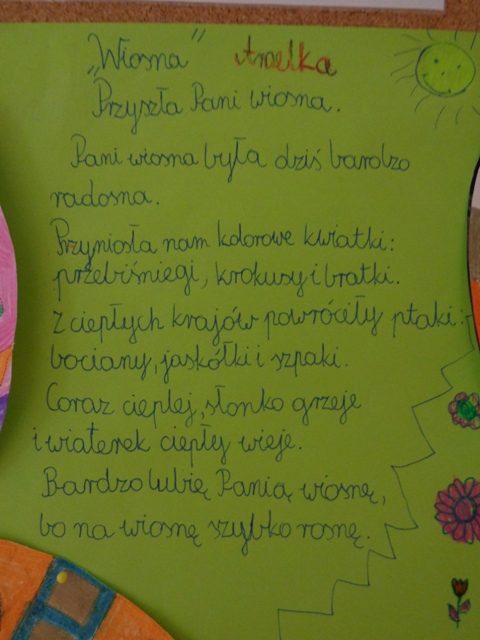 „Wiosna" Amelka
Przyszła Pani wiosna.
Pani wiosna była dziś bardzo
radosna.
Przyniosła nam kolorowe kwiatki:
przebiśniegi, krokusy i bratki.
Z ciepłych krajów powróciły ptaki:
bociany, jaskółki i szpaki.
Coraz cieplej, słonko grzeje
i wiaterek ciepły wieje.
Bardzo lubię Panią wiosnę,
bo na wiosnę szybko rosnę.